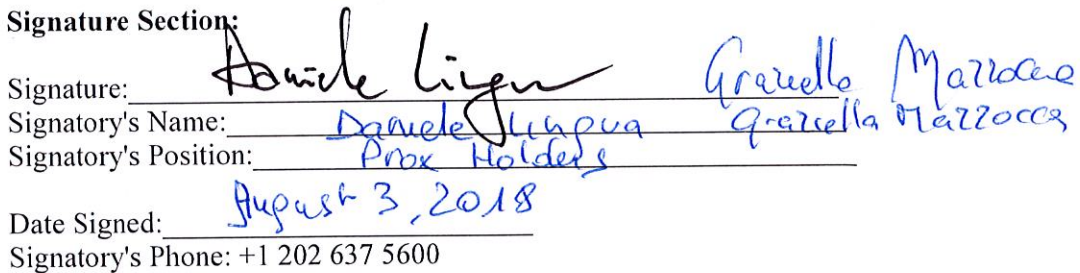 Signature Section:
Signature: Daniele Lingua Graziella Mazzocca
Signatory's Name: Daniele Lingua Graziella Mazzocca
Signatory's Position: Prox Holders
Date Signed: August 3, 2018
Signatory's Phone: +1 202 637 5600